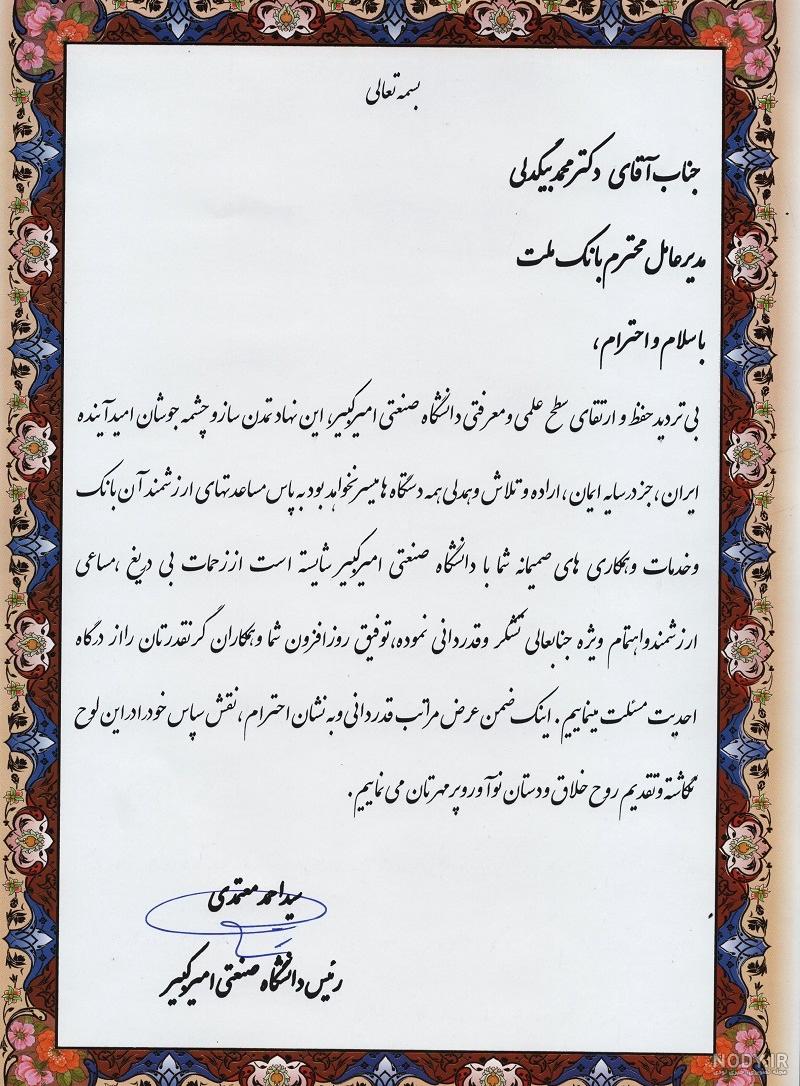 بسمه تعالی
جناب آقای دکتر محمد بیگدلی
مدیرعامل محترم بانک ملت
با سلام و احترام،
بی تردید حفظ و ارتقای سطح علمی و معرفتی دانشگاه صنعتی امیرکبیر، این نهاد تمدن ساز و چشمه جوشان امید آینده
ایران، جز در سایه ایمان، اراده و تلاش و همدلی همه دستگاه ها میسر نخواهد بود به پاس مساعدتهای ارزشمند آن بانک
و خدمات و همکاری های صمیمانه شما با دانشگاه صنعتی امیرکبیر شایسته است از زحمات بی دریغ، مساعی
ارزشمند و اهتمام ویژه جنابعالی تشکر و قدردانی نموده، توفیق روزافزون شما و همکاران گرنقدرتان را از درگاه
احدیت مسئلت مینماییم. اینک ضمن عرض مراتب قدردانی و به نشان احترام، نقش سپاس خود را در این لوح
نگاشته و تقدیم روح خلاق و دستان نوآور و پرمهرتان می نماییم.
سید احمد معتمدی
رئیس دانشگاه صنعتی امیرکبیر
NODY.IR